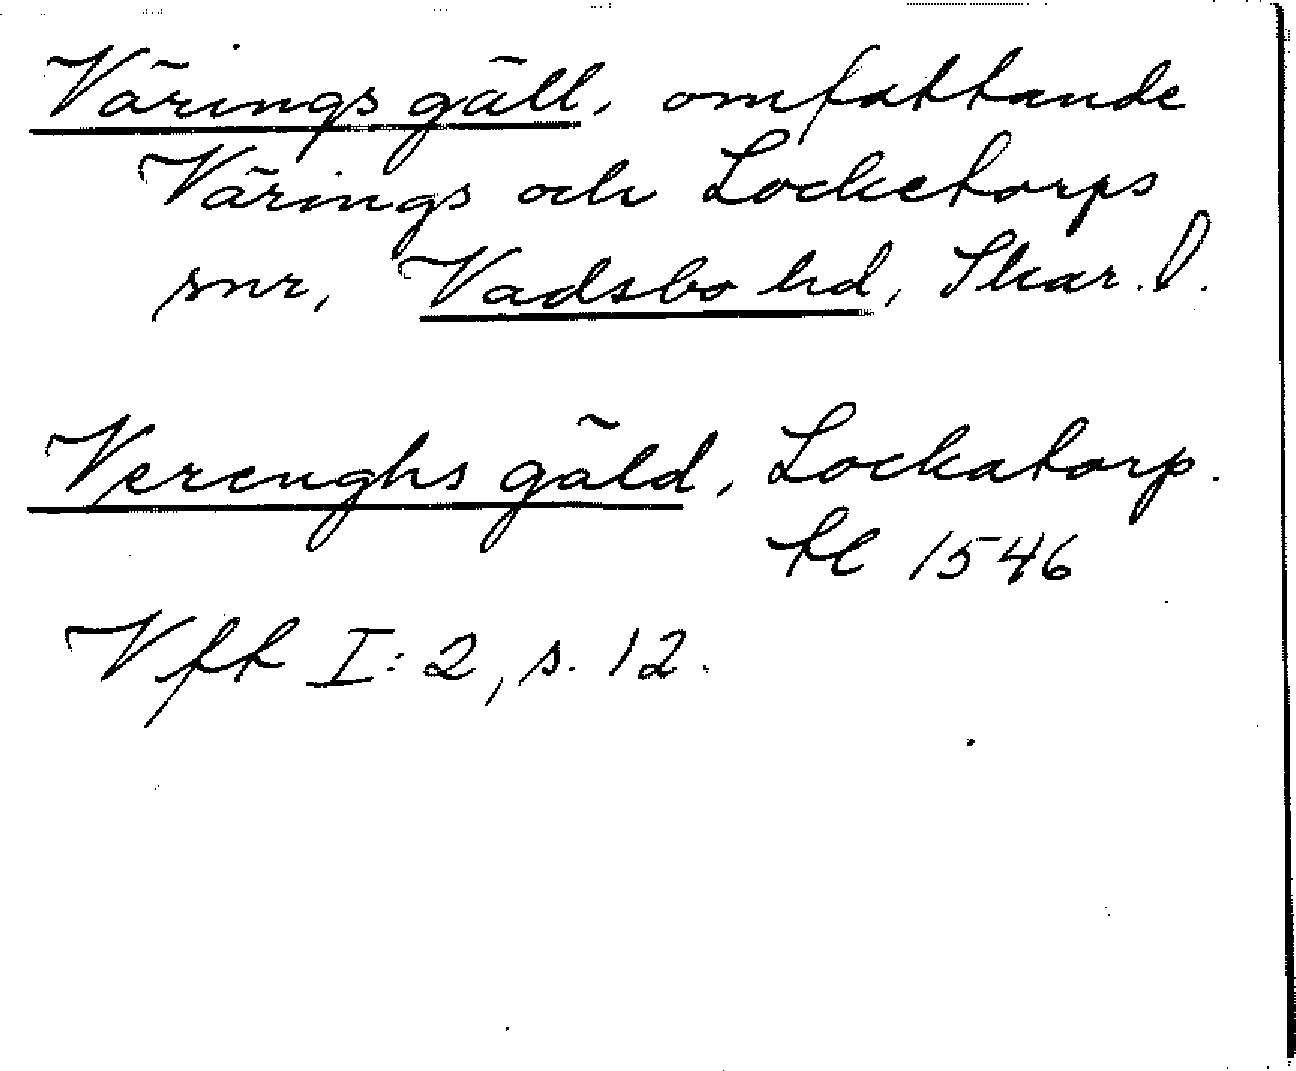 Värings gäll, omfattande
Värings och Locketorps
snr, Vadsbo hd, Skar. l.
Verenghs gäld, Lockatorp.
tl 1546
Vfft I:2, s. 12.